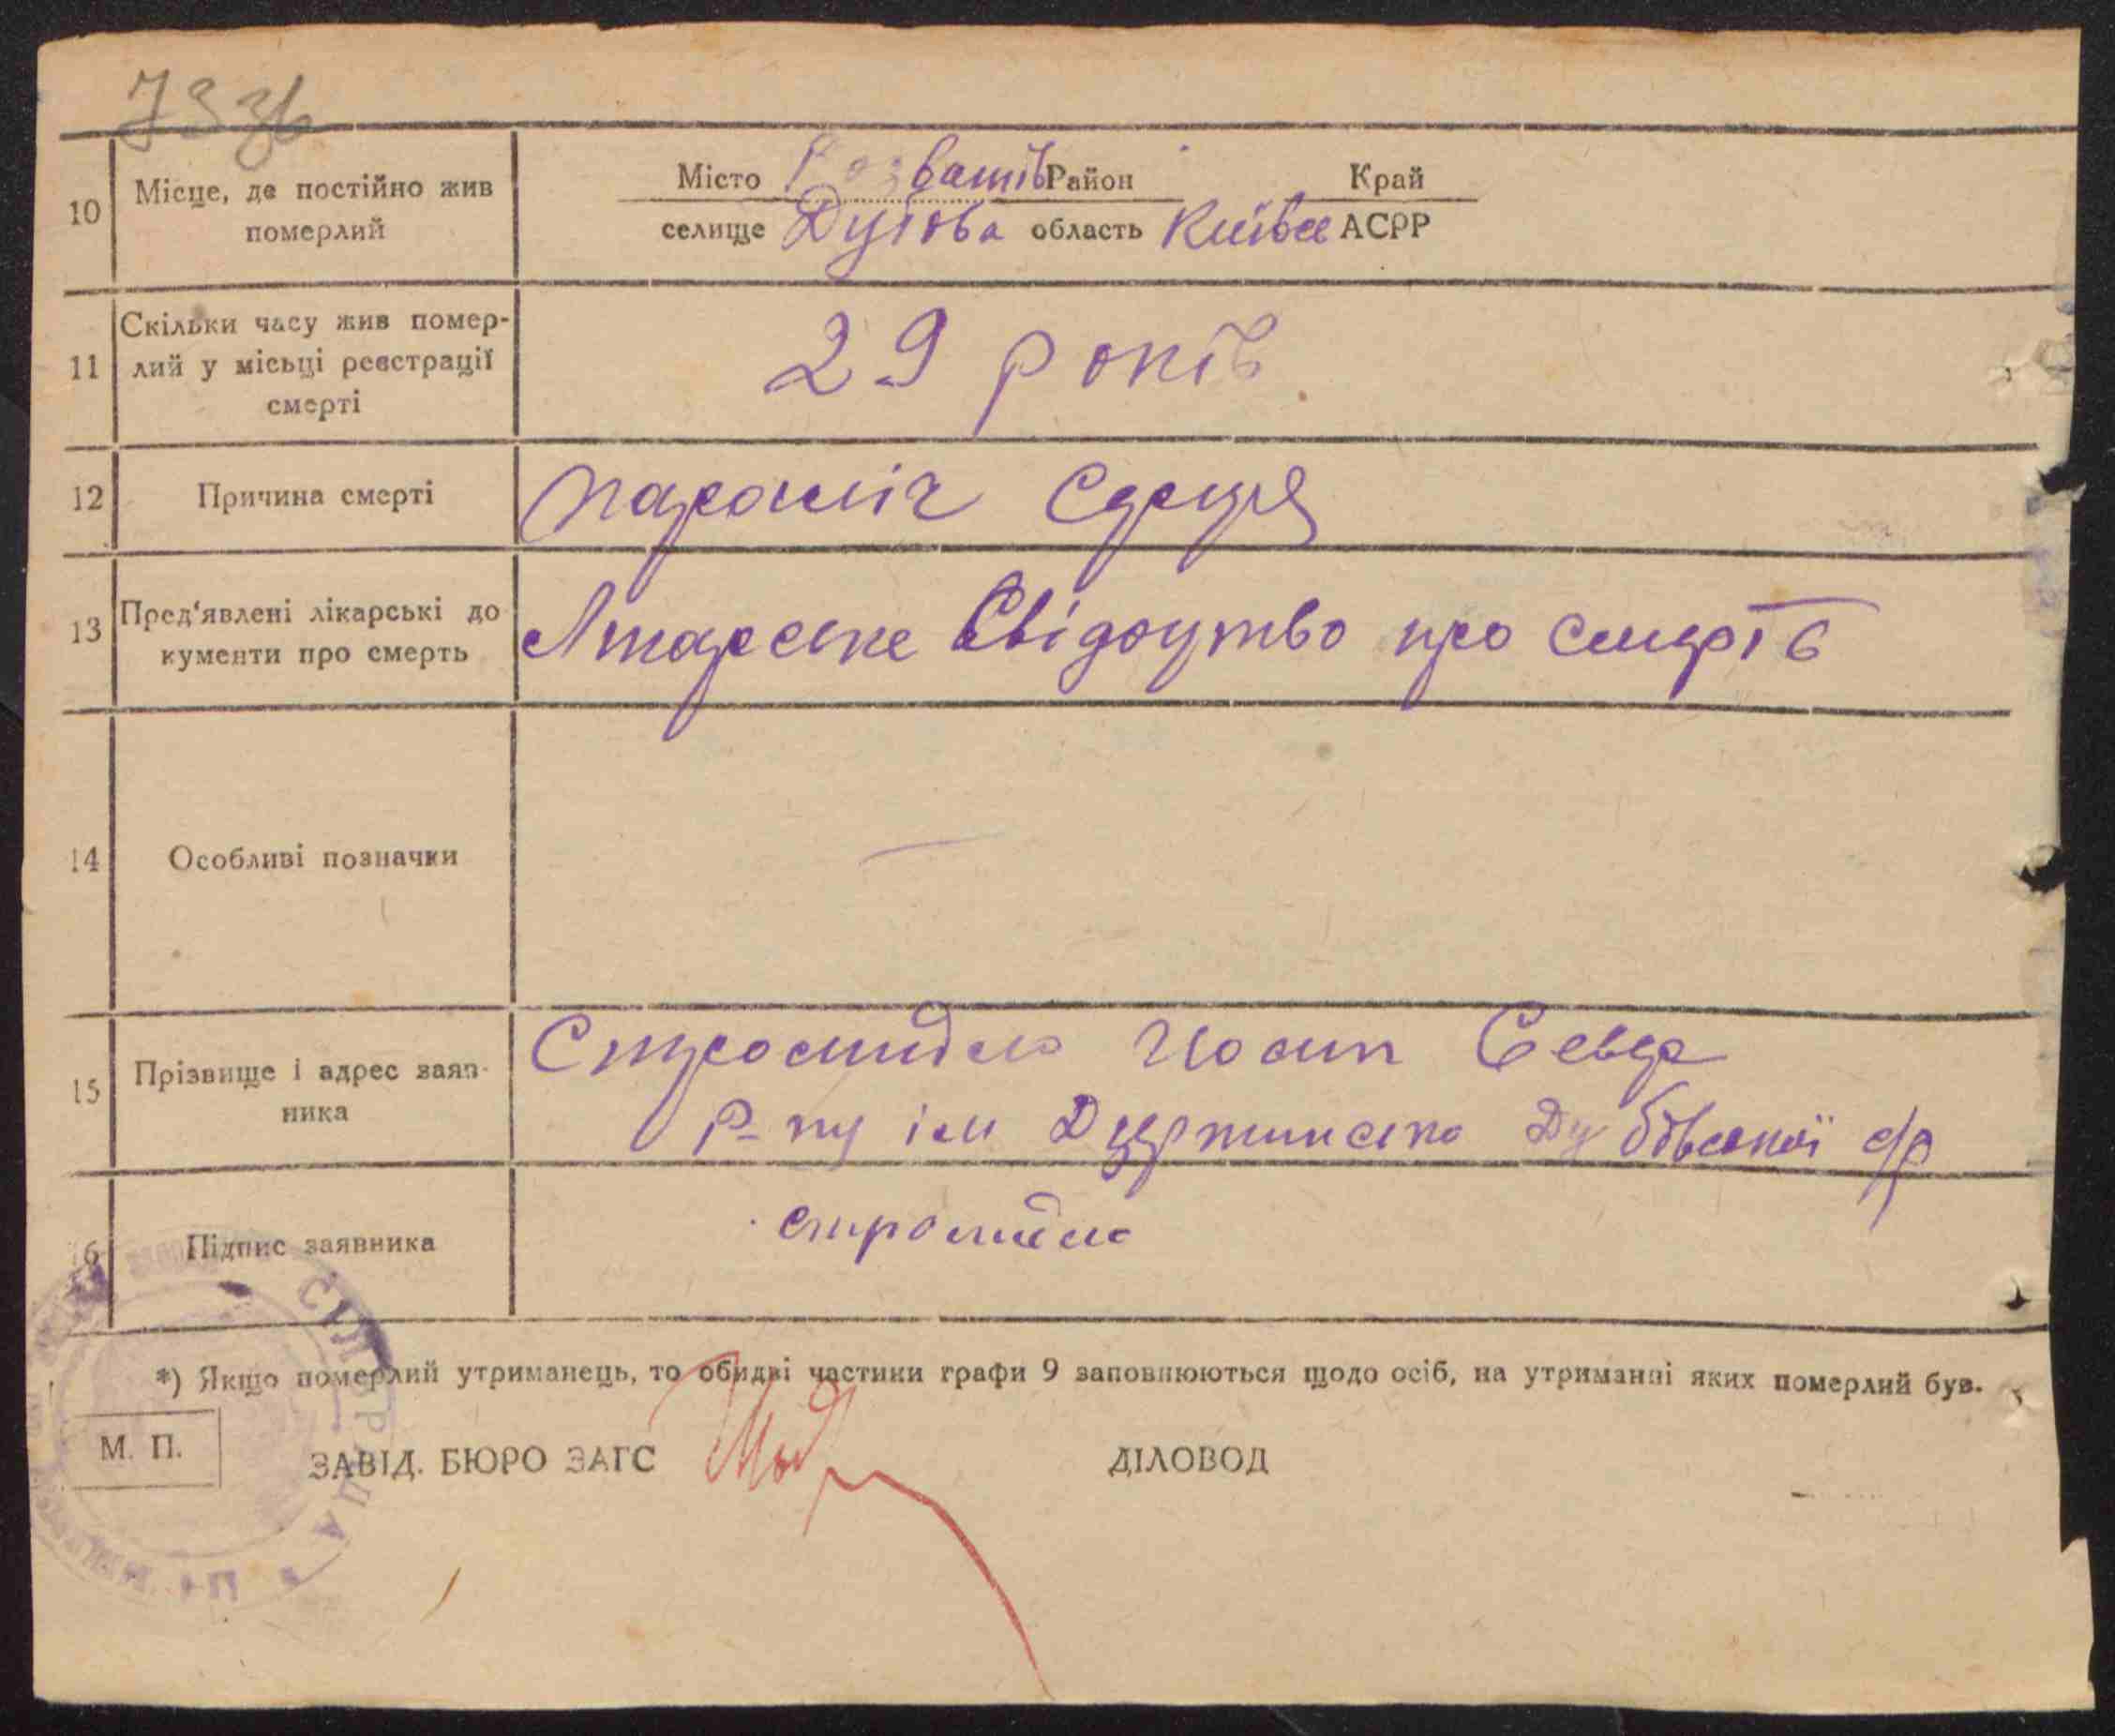 73 зв
10 Місце, де постійно жив померлий
Місто Розважів Район Край
селище Дубова область Київсь АСРР
11 Скільки часу жив помер-
лий у місьці реєстрації
смерті
29 років
12 Причина смерті
параліч серця
13 Пред'явлені лікарські до
кументи про смерть
свідоцтво про смерть
14 Особливі позначки
15 Прізвище і адрес заяв-
ника
Йосип
Р-ну ім Дзержинсько Дубовської с/р
16 Підпис заявника
*) Якщо померлий утриманець, то обидві частини графи 9 заповнюються щодо осіб, на утриманні яких померлий був.
М. П.
ЗАВІД. БЮРО ЗАГС ДІЛОВОД